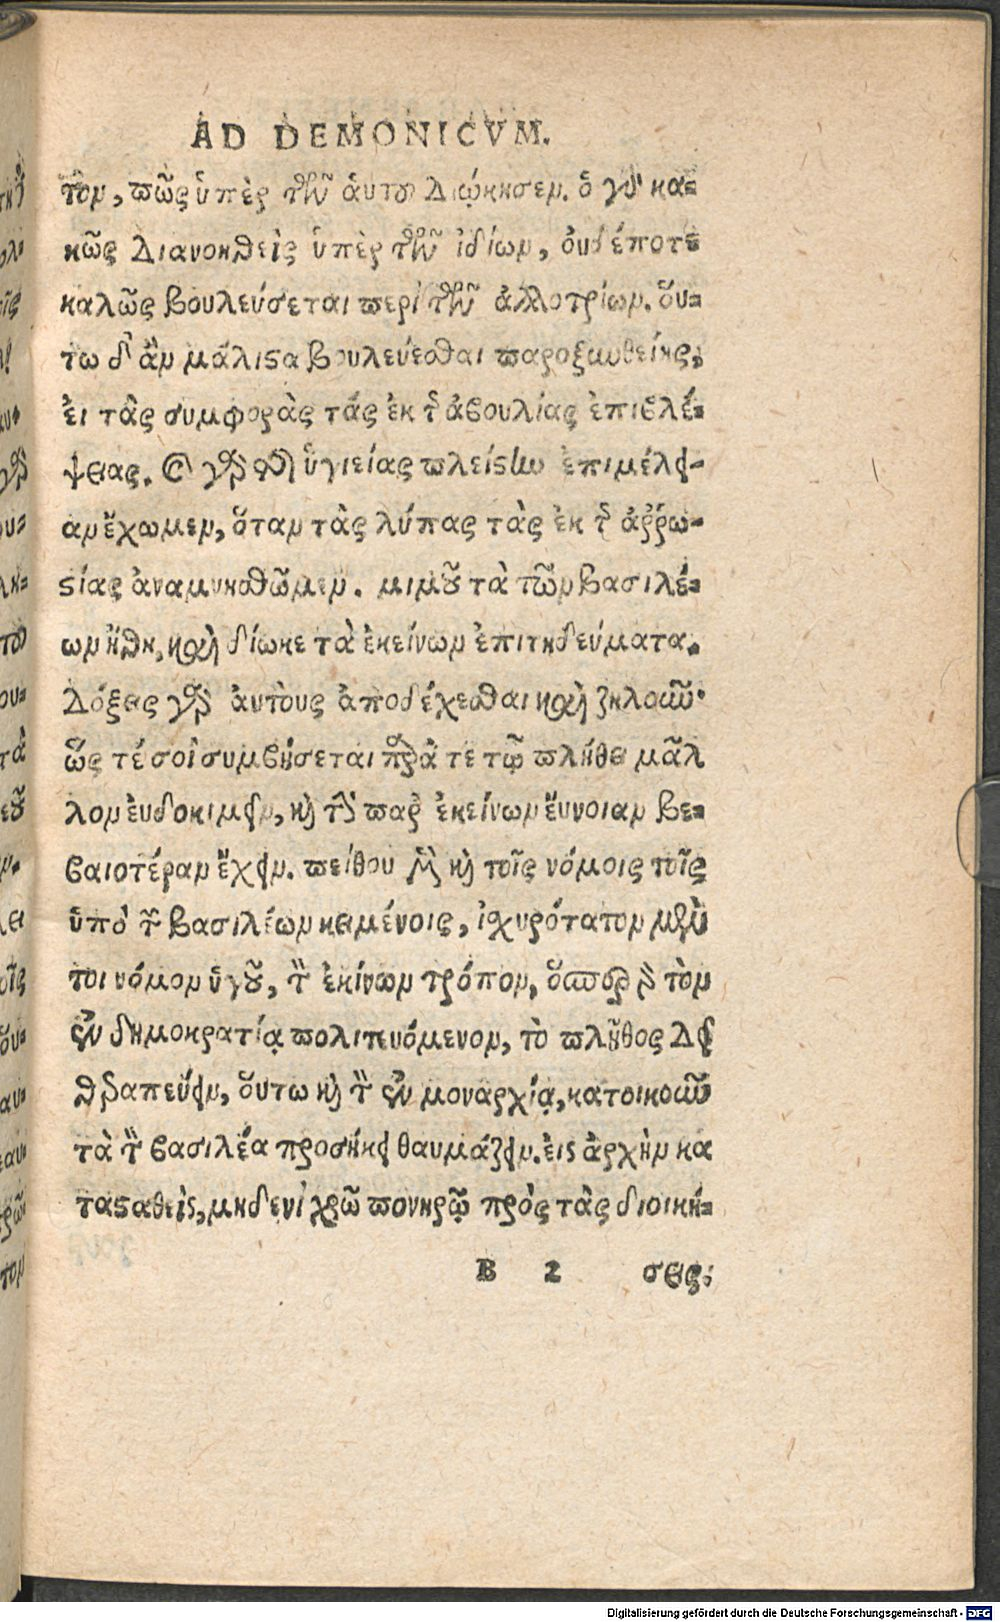 AD DEMONICVM.
τον, πῶς ὑπὲρ τῶν ἁυτου διῴκησεν. ὁ γὸ κα=
κῶς διανοηθεὶς ὑπὲρ τῶν ἰδίων, ὀυδέποτε
καλῶς βουλεύσεται περὶ τῶν ἀλλοτρίων. ὅυ=
τω δ' ἂν μάλιστα βουλεύεσθαι παροξυνθείης,
ἐι τὰς συμφορὰς τάς ἐκ τ̂ ἀβουλίας ἐπιβλέ=
ψειας. Ϲ γὰρ τῆ ὑγιείας πλείστω ἐπιμέλει-
αν ἔχωμεν, ὅταν τὰς λύπας τὰς ἐκ τ̂ ἀῤῥω-
στίας ἀναμνησθῶμεν. μιμοῦ τὰ τῶν βασιλέ=
ων ἤθη, καὶ δίωκε τὰ ἐκείνων ἐπιτηδεύματα.
Δόξεις γὰρ ἀυτοὺς ἀποδέχεσθαι καὶ ζηλοῦν·
ὥς τέ σοὶ συμβήσεται παρά τε τῷ πλήθει μᾶλ
λον ἐυδοκιμεῖν, καὶ τὴν παρ' ἐκείνων ἔυνοιαν βε=
βαιοτέραν ἔχειν. πείθου μὲν καὶ τοῖς νόμοις τοῖς
ὑπὸ τ̃ βασιλέων κειμένοις, ἰσχυρότατον μέν
τοι νόμον ὑγοῦ, τὸν ἐκίνων τρόπον, ὅσπερ γὰρ τὸν
ἐν δημοκρατίᾳ πολιτευόμενον, τὸ πλῆθος δεῖ
θεραπεύειν, ὅυτω καὶ τὸν ἐν μοναρχίᾳ, κατοικοῦν
τὰ τὸν βασιλέα προσήκει θαυμάζειν. ἐις ἀρχὴν κα
τασταθεὶς, μηδενὶ χρῶ πονηρῷ πρὸς τὰς διοική=
B 2 σεις;
Digitalisierung gefördert durch die Deutsche Forschungsgemeinschaft - DFG